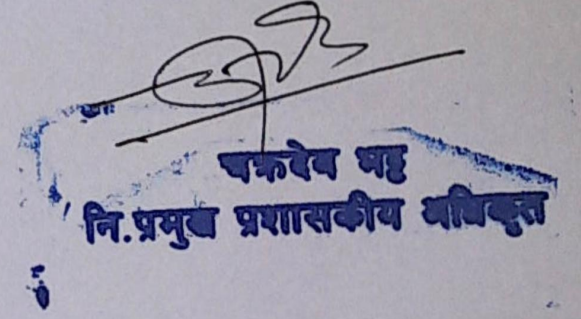 चक्रदेव भट्ट
नि.प्रमुख प्रशासकीय अधिकृत